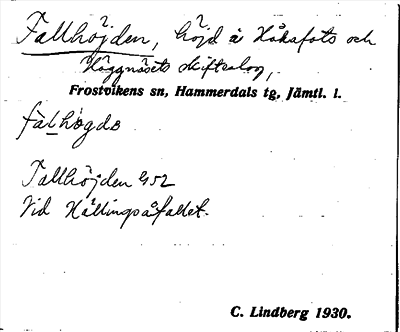 Tallhöjden, höjd å Håkafots och
Häggnäsets skifteslag,
Frostvikens sn, Hammerdals tg, Jämtl. l.
Tallhöjden 952
Vid Hällingsåfallet.
C. Lindberg 1930.